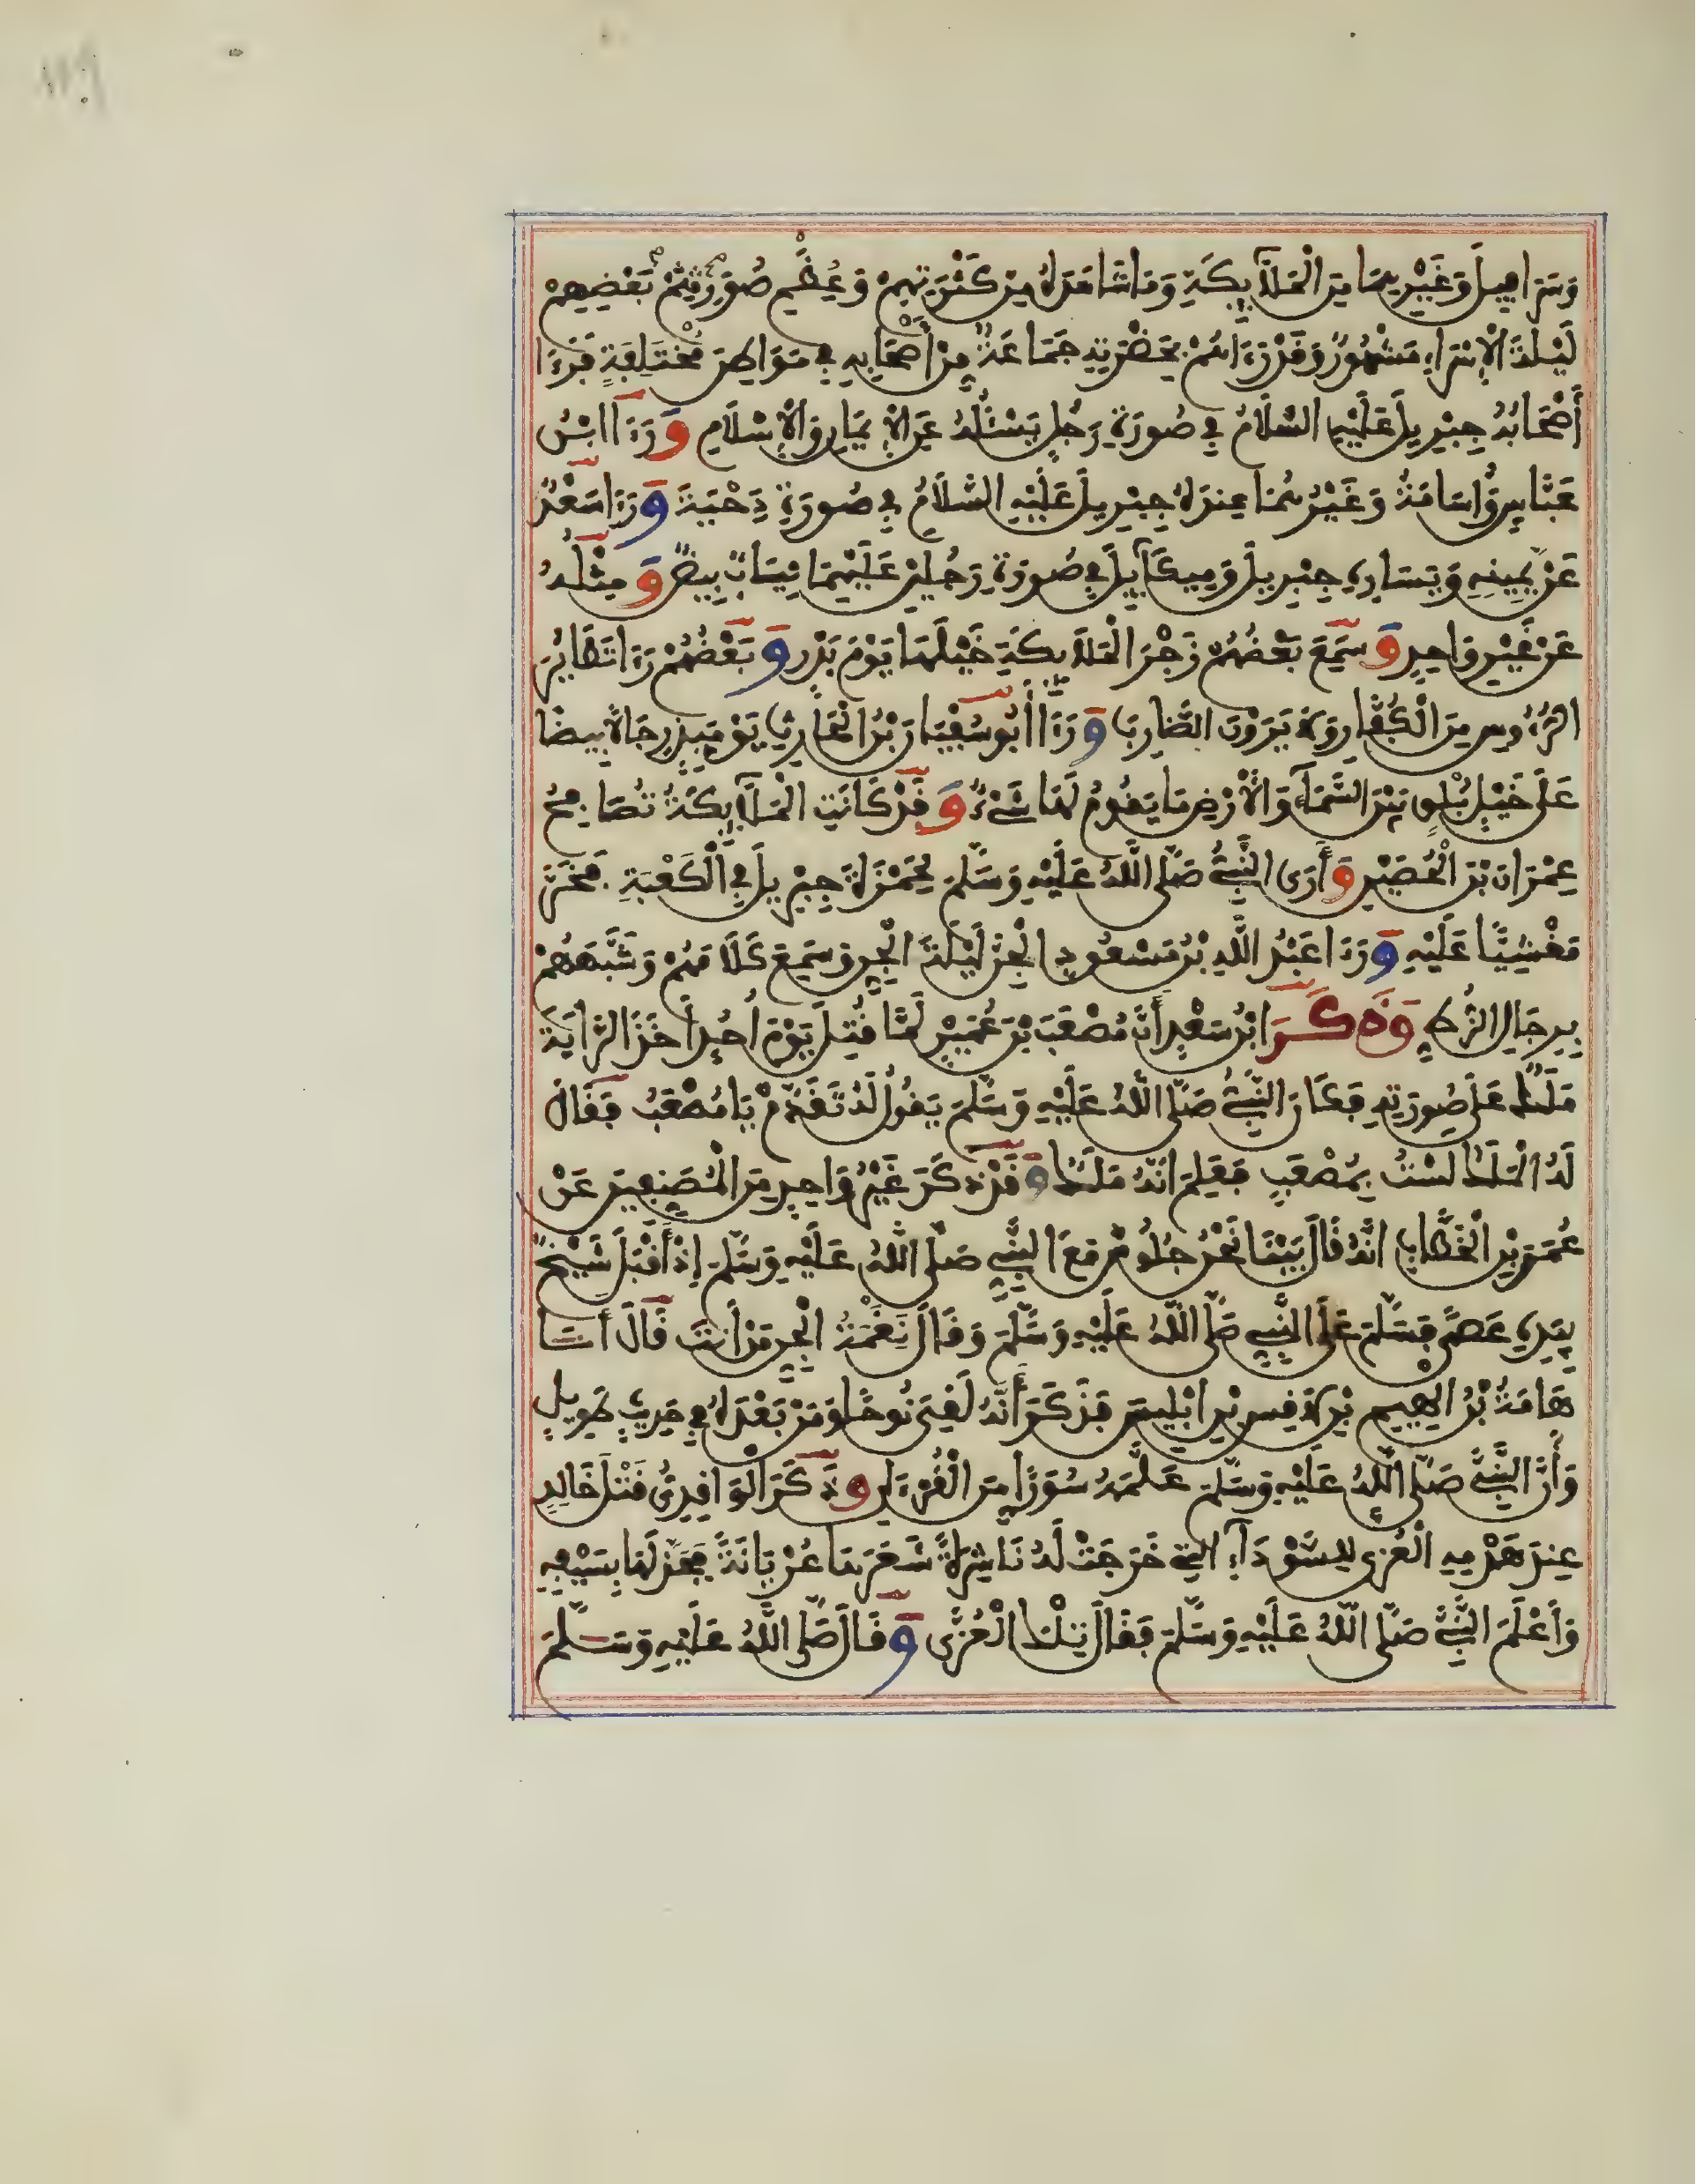 وَسَرَافِيلَ وَغَيْرِهِمَا مِنَ الْمَلَآئِكَةِ وَمَا شَاهَدَهُ مِنْ كَثْرَتِهِمْ وَعِظَمِ صُوَرِهِمْ بَعْضِهِمْ
لَيْلَةَ الْإِسْرَاءِ مَشْهُورٌ وَقَدْ رَءَاهُمْ بِحَضْرَتِهِ جَمَاعَةٌ مِنْ أَصْحَابِهِ فِي مَوَاطِنَ مُخْتَلِفَةٍ فَرَءَا
أَصْحَابُهُ جِبْرِيلَ عَلَيْهِ السَّلَامُ فِي صُورَةِ رَجُلٍ يَسْئَلُهُ عَنِ الْإِيمَانِ وَالْإِسْلَامِ وَرَءَا ابْنُ
عَبَّاسٍ وَأُسَامَةُ وَغَيْرُهُمَا عِنْدَهُ جِبْرِيلَ عَلَيْهِ السَّلَامُ فِي صُورَةِ دِحْيَةَ وَرَءَا سَعْدٌ
عَنْ يَمِينِهِ وَيَسَارِهِ جِبْرِيلَ وَمِيكَآئِيلَ فِي صُورَةِ رَجُلَيْنِ عَلَيْهِمَا ثِيَابٌ بِيضٌ وَمِثْلُهُ
عَنْ غَيْرِ وَاحِدٍ وَسَمِعَ بَعْضُهُمْ زَجْرَ الْمَلَآئِكَةِ خَيْلَهَا يَوْمَ بَدْرٍ وَبَعْضُهُمْ رَءَا تَطَايُرَ
الرُّءُوسِ مِنَ الْكُفَّارِ وَلَا يَرَوْنَ الضَّارِبَ وَرَءَا أَبُو سُفْيَانَ بْنُ الْحَارِثِ يَوْمَئِذٍ رِجَالًا بِيضًا
عَلَى خَيْلٍ بُلْقٍ بَيْنَ السَّمَآءِ وَالْأَرْضِ مَا يَقُومُ لَهَا شَيْءٌ وَقَدْ كَانَتِ الْمَلَآئِكَةُ تُصَافِحُ
عِمْرَانَ بْنَ الْحُصَيْنِ وَأَرَى النَّبِيُّ صَلَّى اللَّهُ عَلَيْهِ وَسَلَّمَ لِحَمْزَةَ جِبْرِيلَ فِي الْكَعْبَةِ فَخَرَّ
مَغْشِيًّا عَلَيْهِ وَرَءَا عَبْدُ اللَّهِ بْنُ مَسْعُودٍ الْجِنَّ لَيْلَةَ الْجِنِّ وَسَمِعَ كَلَامَهُمْ وَشَبَّهَهُمْ
بِرِجَالِ الزُّطِّ وَذَكَرَ ابْنُ سَعْدٍ أَنَّ مُصْعَبَ بْنَ عُمَيْرٍ لَمَّا قُتِلَ يَوْمَ أُحُدٍ أَخَذَ الرَّايَةَ
مَلَكٌ عَلَى صُورَتِهِ فَكَانَ النَّبِيُّ صَلَّى اللَّهُ عَلَيْهِ وَسَلَّمَ يَقُولُ لَهُ تَقَدَّمْ يَا مُصْعَبُ فَقَالَ
لَهُ الْمَلَكُ لَسْتُ بِمُصْعَبٍ فَعَلِمَ أَنَّهُ مَلَكٌ وَقَدْ ذَكَرَ غَيْرُ وَاحِدٍ مِنَ الْمُصَنِّفِينَ عَنْ
عُمَرَ بْنِ الْخَطَّابِ أَنَّهُ قَالَ بَيْنَا نَحْنُ جُلُوسٌ مَعَ النَّبِيِّ صَلَّى اللَّهُ عَلَيْهِ وَسَلَّمَ إِذْ أَقْبَلَ شَيْخٌ
بِيَدِهِ عَصًى فَسَلَّمَ عَلَى النَّبِيِّ صَلَّى اللَّهُ عَلَيْهِ وَسَلَّمَ وَقَالَ نَغَمَةُ الْجِنِّ مَنْ أَنْتَ قَالَ أَنَا
هَامَةُ بْنُ الْهِيمِ بْنِ لَاقِيسِ بْنِ إِبْلِيسَ فَذَكَرَ أَنَّهُ لَقِيَ نُوحًا وَمَنْ بَعْدَهُ فِي حَدِيثٍ طَوِيلٍ
وَأَنَّ النَّبِيَّ صَلَّى اللَّهُ عَلَيْهِ وَسَلَّمَ عَلَّمَهُ سُوَرًا مِنَ الْقُرْءَانِ وَذَكَرَ الْوَاقِدِيُّ قَتْلَ خَالِدٍ
عِنْدَ هَدْمِهِ الْعُزَّى لِلسَّوْدَآءِ الَّتِي خَرَجَتْ لَهُ نَاشِرَةً شَعَرَهَا عُرْيَانَةً فَجَزَلَهَا بِسَيْفِهِ
وَأَعْلَمَ النَّبِيَّ صَلَّى اللَّهُ عَلَيْهِ وَسَلَّمَ فَقَالَ تِلْكَ الْعُزَّى وَقَالَ صَلَّى اللَّهُ عَلَيْهِ وَسَلَّمَ